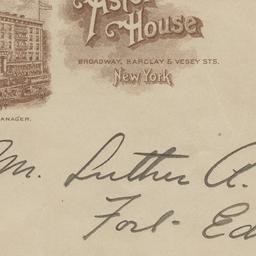 Astor
House
BROADWAY, BARCLAY & VESEY STS.
New York
MANAGER.
Wm. Luther A.
Fort Ed